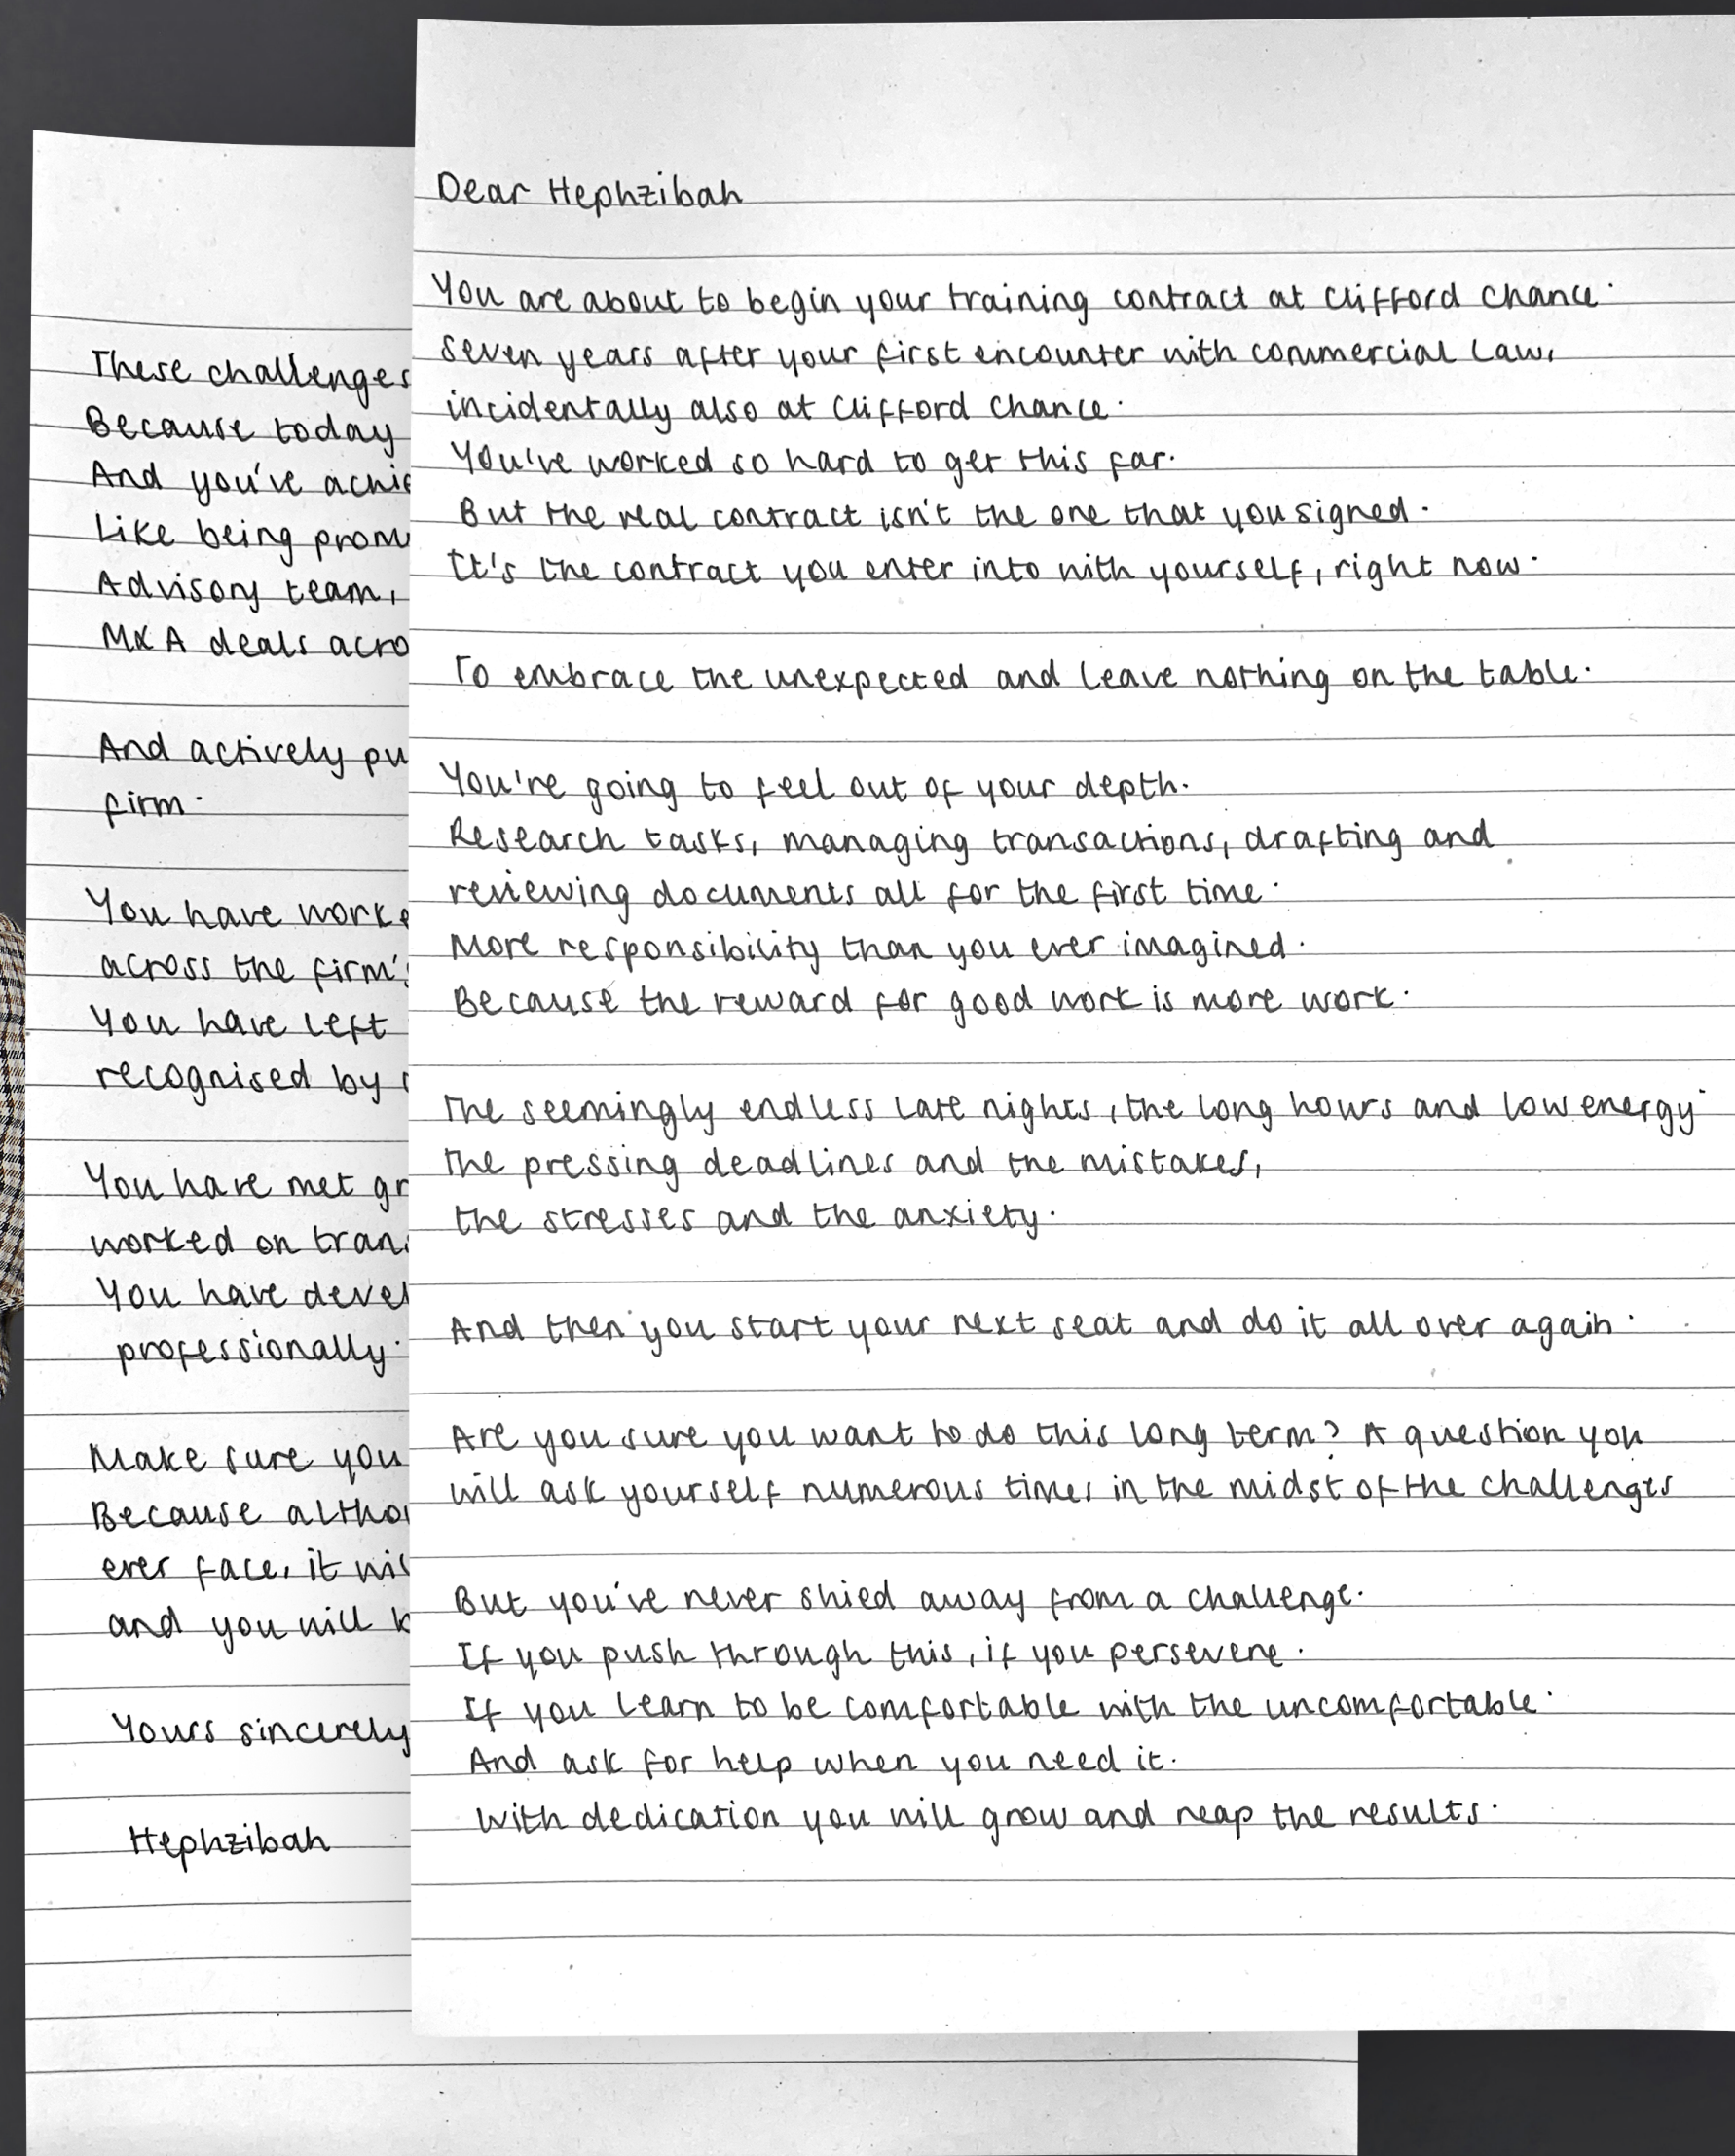 Dear Hephzibah
You are about to begin your training contract at Clifford Chance.
Seven years after your first encounter with commercial law,
incidentally also at Clifford Chance.
You've worked so hard to get this far.
But the real contract isn't the one that you signed.
It's the contract you enter into with yourself, right now.
To embrace the unexpected and leave nothing on the table.
You're going to feel out of your depth.
Research tasks, managing transactions, drafting and
reviewing documents all for the first time.
More responsibility than you ever imagined.
Because the reward for good work is more work.
The seemingly endless late nights, the long hours and low energy
The pressing deadlines and the mistakes,
the stresses and the anxiety.
And then you start your next seat and do it all over again.
Are you sure you want to do this long term? A question you
will ask yourself numerous times in the midst of the challenges
But you've never shied away from a challenge.
If you push through this, if you persevere.
If you learn to be comfortable with the uncomfortable.
And ask for help when you need it.
With dedication you will grow and reap the results.
These challenges
Because today
And you've
Like being
Advisory team,
M&A deals
And actively
firm.
You have
across the firm's
You have left
recognised by
You have met
worked on
You have
professionally.
Make sure you
Because
ever face, it
and you will
Yours sincerely
Hephzibah